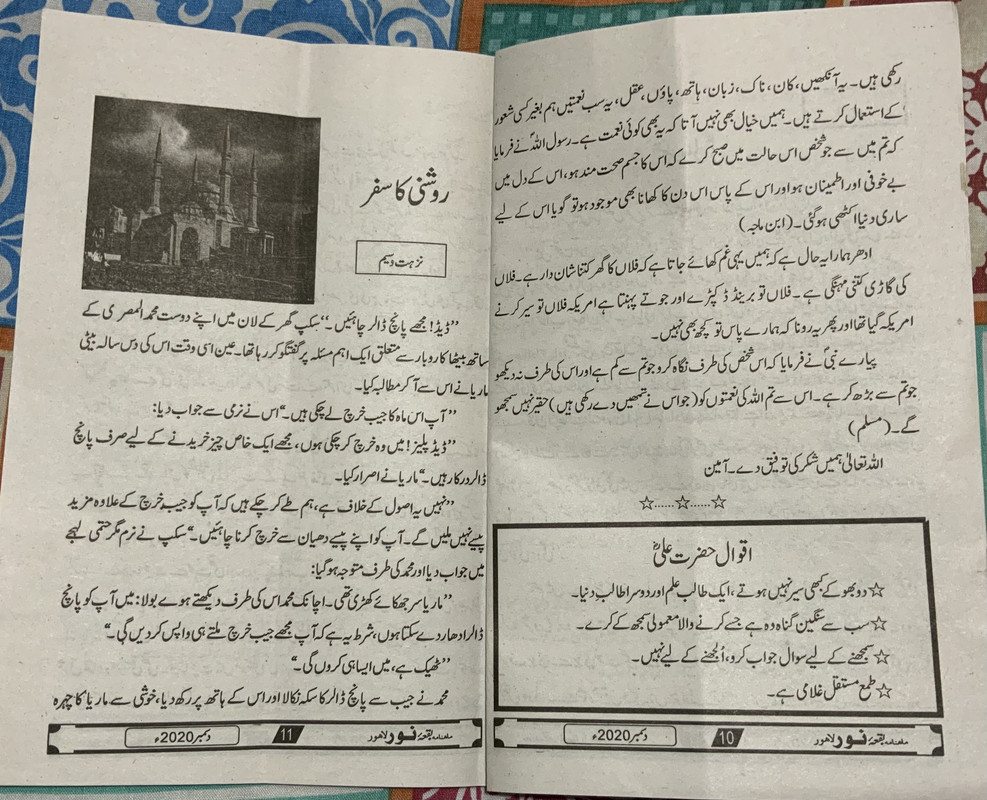 رکھی ہیں۔ یہ آنکھیں، کان، ناک، زبان، ہاتھ، پاؤں، عقل، یہ سب نعمتیں ہم بغیر کسی شعور
کے استعمال کرتے ہیں۔ ہمیں خیال بھی نہیں آتا کہ یہ بھی کوئی نعمت ہے۔ رسول اللہؐ نے فرمایا
کہ تم میں سے جو شخص اس حالت میں صبح کرے کہ اس کا جسم صحت مند ہو، اس کے دل میں
بے خوفی اور اطمینان ہو اور اس کے پاس اس دن کا کھانا بھی موجود ہو تو گویا اس کے لیے
ساری دنیا اکٹھی ہوگئی۔ (ابن ماجہ)
ادھر ہمارا یہ حال ہے کہ ہمیں یہی غم کھائے جاتا ہے کہ فلاں کا گھر کتنا شان دار ہے۔ فلاں
کی گاڑی کتنی مہنگی ہے۔ فلاں تو برینڈڈ کپڑے اور جوتے پہنتا ہے امریکہ فلاں تو سیر کرنے
امریکہ گیا تھا اور پھر یہ رونا کہ ہمارے پاس تو کچھ بھی نہیں۔
پیارے نبیؐ نے فرمایا کہ اس شخص کی طرف نگاہ کرو جو تم سے کم ہے اور اس کی طرف نہ دیکھو
جو تم سے بڑھ کر ہے۔ اس سے تم اللہ کی نعمتوں کو (جو اس نے تمھیں دے رکھی ہیں) حقیر نہیں سمجھو
گے۔ (مسلم)
اللہ تعالیٰ ہمیں شکر کی توفیق دے۔ آمین
☆......☆......☆
اقوال حضرت علیؓ
☆ دو بھوکے کبھی سیر نہیں ہوتے، ایک طالب علم اور دوسرا طالبِ دنیا۔
☆ سب سے سنگین گناہ وہ ہے جسے کرنے والا معمولی سمجھ کے کرے۔
☆ سمجھنے کے لیے سوال جواب کرو، اُلجھنے کے لیے نہیں۔
☆ طمع مستقل غلامی ہے۔
ماہنامہ بقعۂ نور لاہور 10 دسمبر 2020ء
روشنی کا سفر
نزہت وسیم
”ڈیڈ! مجھے پانچ ڈالر چاہئیں۔“ سکپ گھر کے لان میں اپنے دوست محمد المصری کے
ساتھ بیٹھا کاروبار سے متعلق ایک اہم مسئلہ پر گفتگو کر رہا تھا۔ عین اسی وقت اس کی دس سالہ بیٹی
ماریا نے اس سے آ کر مطالبہ کیا۔
”آپ اس ماہ کا جیب خرچ لے چکی ہیں۔“ اس نے نرمی سے جواب دیا:
”ڈیڈ پلیز! میں وہ خرچ کر چکی ہوں، مجھے ایک خاص چیز خریدنے کے لیے صرف پانچ
ڈالر درکار ہیں۔“ ماریا نے اصرار کیا۔
”نہیں یہ اصول کے خلاف ہے، ہم طے کر چکے ہیں کہ آپ کو جیب خرچ کے علاوہ مزید
پیسے نہیں ملیں گے۔ آپ کو اپنے پیسے دھیان سے خرچ کرنا چاہئیں۔“ سکپ نے نرم مگر حتمی لہجے
میں جواب دیا اور محمد کی طرف متوجہ ہو گیا:
”ماریا سر جھکائے کھڑی تھی۔ اچانک محمد اس کی طرف دیکھتے ہوے بولا: میں آپ کو پانچ
ڈالر ادھار دے سکتا ہوں، شرط یہ ہے کہ آپ مجھے جیب خرچ ملتے ہی واپس کر دیں گی۔“
”ٹھیک ہے، میں ایسا ہی کروں گی۔“
محمد نے جیب سے پانچ ڈالر کا سکہ نکالا اور اس کے ہاتھ پر رکھ دیا، خوشی سے ماریا کا چہرہ
ماہنامہ بقعۂ نور لاہور 11 دسمبر 2020ء